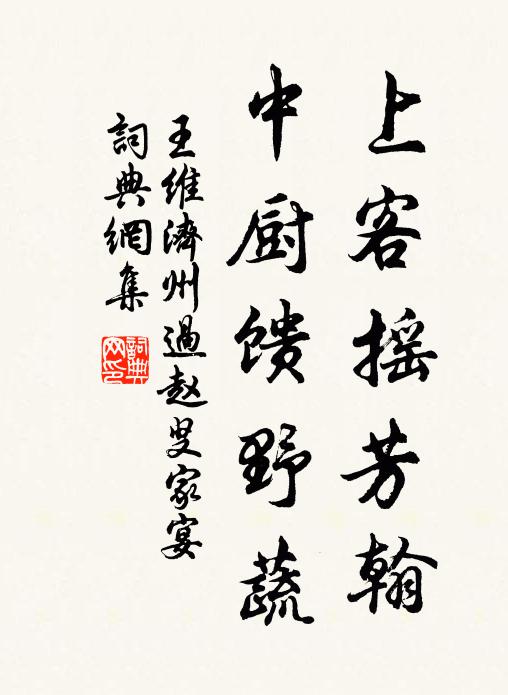 上客摇芳翰
中厨馈野蔬
王維濟州過赵叟家宴
詞典網集
詞典网印